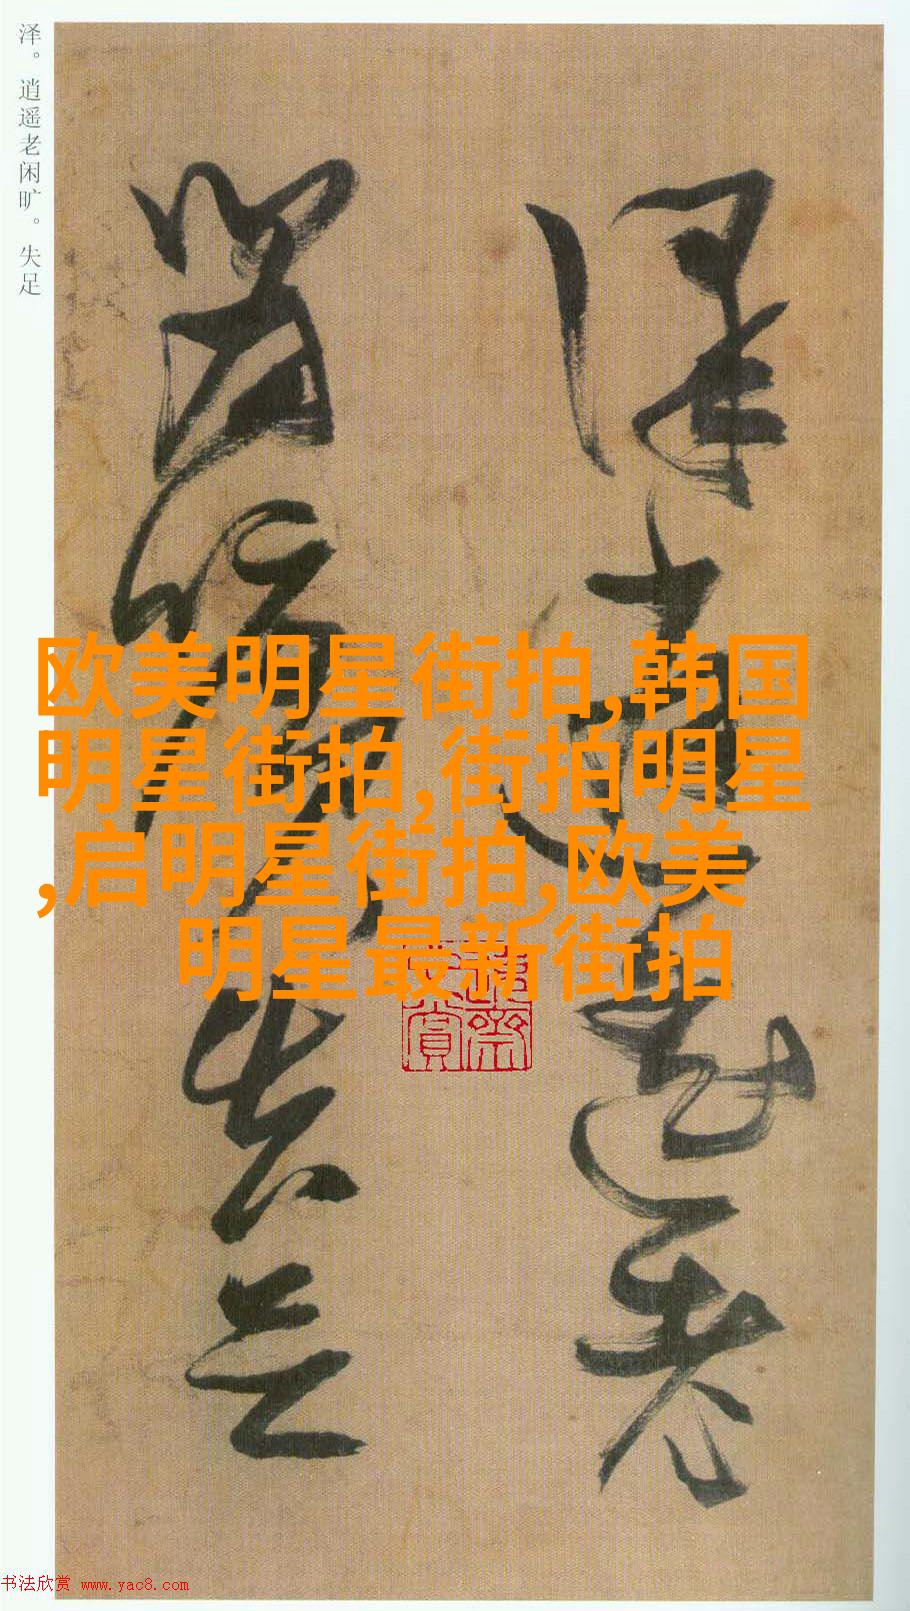 泽。逍遥老闲旷。失足
泽逍遥老
闲旷失足
欧美明星街拍,韩国
明星街拍,街拍明星
,启明星街拍,欧美
明星最新街拍
书法欣赏 www.yac8.com